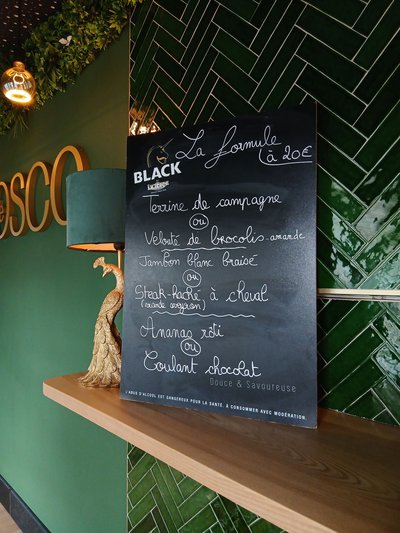 OSCO
La formule
à 20€
BLACK
Terrine de campagne
ou
Velouté de brocolis-amande
Jambon blanc braisé
ou
Steak-haché à cheval
(viande aveyron)
Ananas rôti
ou
Coulant chocolat
Douce & Savoureuse
L'ABUS D'ALCOOL EST DANGEREUX POUR LA SANTÉ. À CONSOMMER AVEC MODÉRATION.